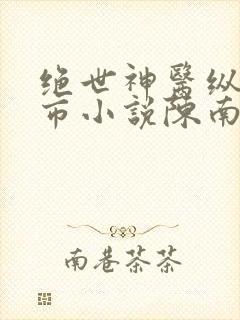 绝世神醫纵
市小説陳南
南巷茶茶